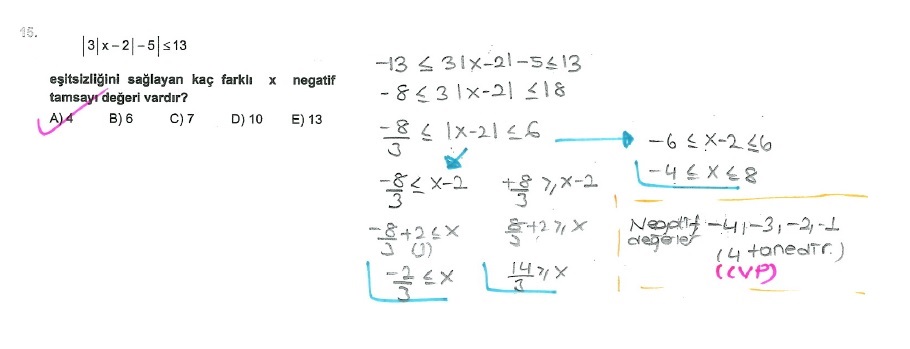 15.
|3|x-2|-5|≤13
eşitsizliğini sağlayan kaç farklı x negatif
tamsayı değeri vardır?
A) 4 B) 6 C) 7 D) 10 E) 13
-13 ≤ 3|x-2|-5≤13
-8≤3|x-2| ≤18
-8/3 ≤ |x-2| ≤6
-8/3 ≤ x-2
+8/3 ≥ x-2
-8/3+2 ≤ x
(3)
8/3+2 ≥ x
-2/3 ≤ x
14/3 ≥ x
-6 ≤ x-2 ≤6
-4 ≤ x ≤ 8
Negatif -4, -3, -2, -1
değerler
(4 tanedir.)
(CVP)